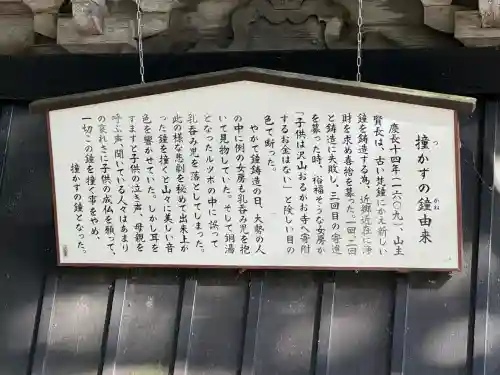 撞かずの鐘由来
つ
かね
慶長十四年(一六〇九)、山主
賢長は、古い半鐘にかえ新しい
鐘を鋳造する為、近郷近在に浄
財を求め喜捨を募った。一回二回
と鋳造に失敗し、三回目の寄進
を募った時、裕福そうな女房が
「子供は沢山おるがお寺へ寄附
するお金はない」と険しい目の
色で断った。
やがて鐘鋳造の日、大勢の人
の中に例の女房も乳呑み児を抱
いて見物していた。そして銅湯
となったルツボの中に誤って
乳呑み児を落としてしまった。
此の様な悲劇を秘めて出来上が
った鐘を撞くに山々に美しい音
色を響かせていた。しかし耳を
すますと子供の泣き声、母親を
呼ぶ声、聞いている人々はあまり
の哀れさに子供の成仏を願って、
一切この鐘を撞く事をやめ、
撞かずの鐘となった。